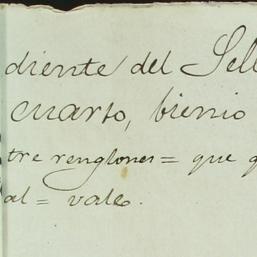 diente del Sell
cuarto, bienio
tre renglones = que q
al = vale.